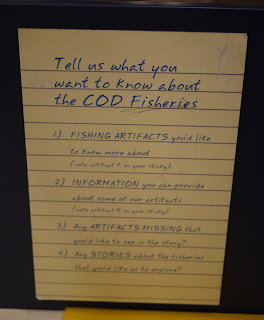 Tell us what you
want to know about
the COD Fisheries
1) FISHING ARTIFACTS you'd like
to know more about
(note artifact # on your sticky).
2) INFORMATION you can provide
about some of our artifacts
(note artifact # on your sticky)
3) Any ARTIFACTS MISSING that
you'd like to see in the story?
4) Any STORIES about the fisheries
that you'd like us to explore?